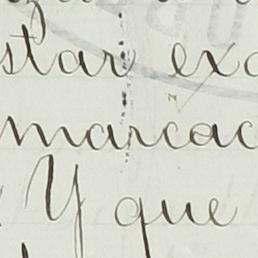 star exa
marcac
Y que